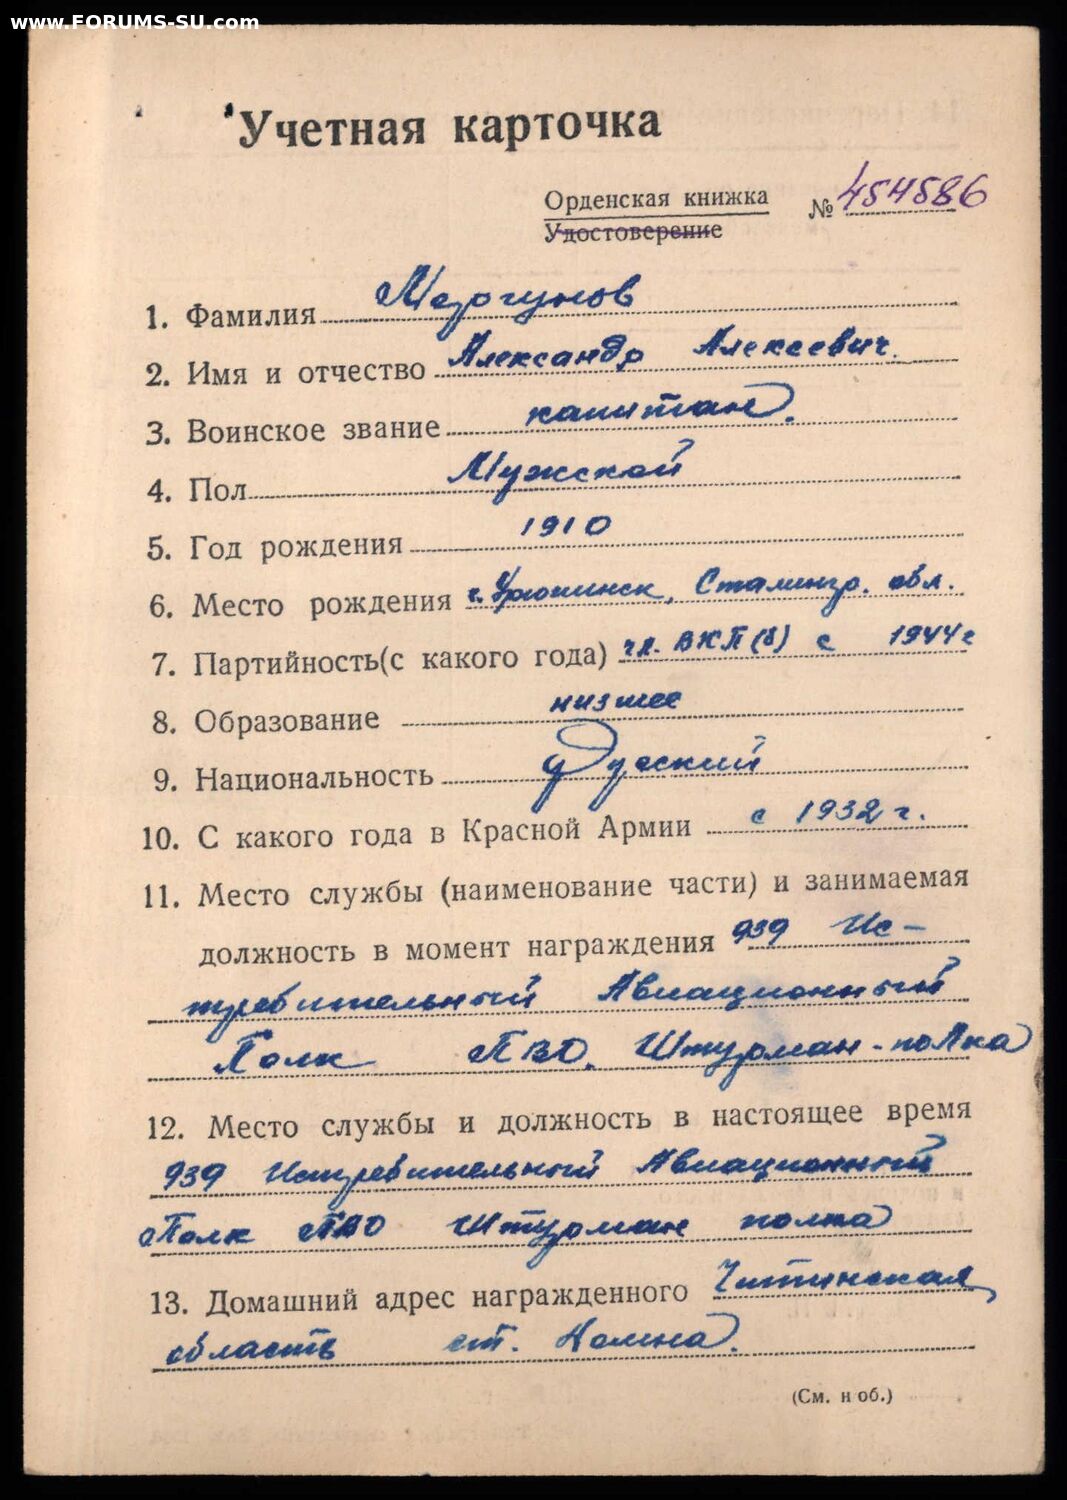 www.FORUMS-SU.com
Учетная карточка
Орденская книжка № 454586
Удостоверение
1. Фамилия Моргунов
2. Имя и отчество Александр Алексеевич.
3. Воинское звание капитан.
4. Пол Мужской
5. Год рождения 1910
6. Место рождения г. Урюпинск, Сталингр. обл.
7. Партийность(с какого года) чл. ВКП(б) с 1944 г
8. Образование низшее
9. Национальность Русский
10. С какого года в Красной Армии с 1932 г.
11. Место службы (наименование части) и занимаемая
должность в момент награждения 939 Ис-
требительный Авиационный
Полк ПВО. Штурман-полка
12. Место службы и должность в настоящее время
939 Истребительный Авиационный
Полк ПВО Штурман полка
13. Домашний адрес награжденного Читинская
область ст.
(См. н об.)